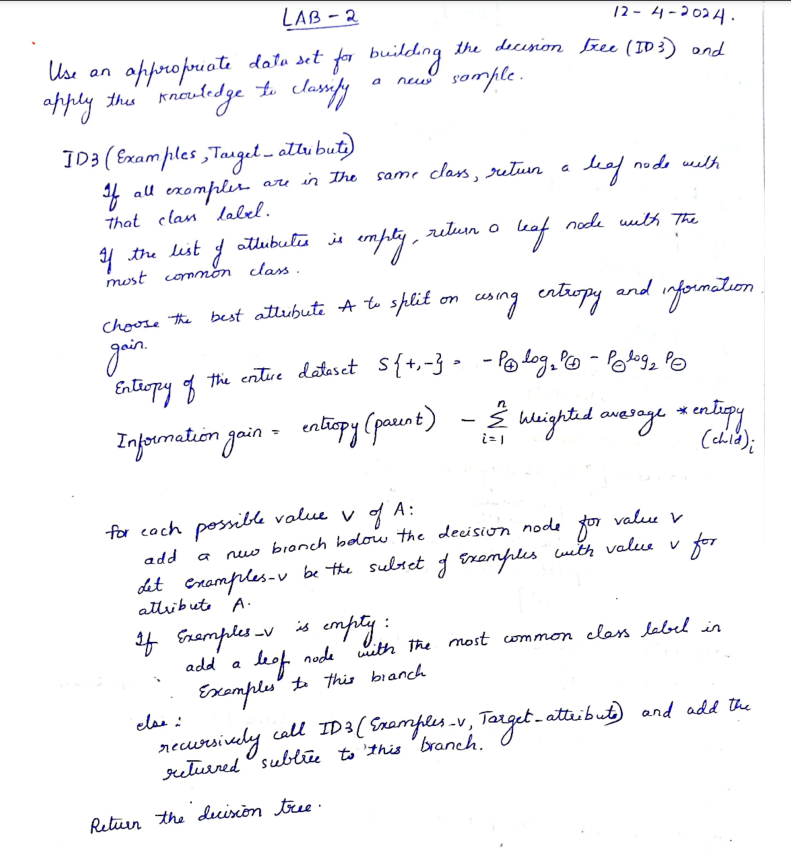 LAB - 2
12 - 4 - 2024.
Use an appropriate data set for building the decision tree (ID3) and
apply this knowledge to classify a new sample.
ID3 (Examples, Target_attribute)
If all examples are in the same class, return a leaf node with
that class label.
If the list of attributes is empty, return a leaf node with the
most common class.
Choose the best attribute A to split on using entropy and information
gain.
Entropy of the entire dataset S{+,-} = - P⊕ log₂ P⊕ - P⊖ log₂ P⊖
Information gain = entropy (parent) - Σ Weighted average * entropy
n
i=1
(child)ᵢ
for each possible value v of A:
add a new branch below the decision node for value v
let examples-v be the subset of Examples with value v for
attribute A.
If Examples-v is empty:
add a leaf node with the most common class label in
Examples to this branch
else:
recursively call ID3 (Examples-v, Target-attribute) and add the
returned subtree to this branch.
Return the decision tree.